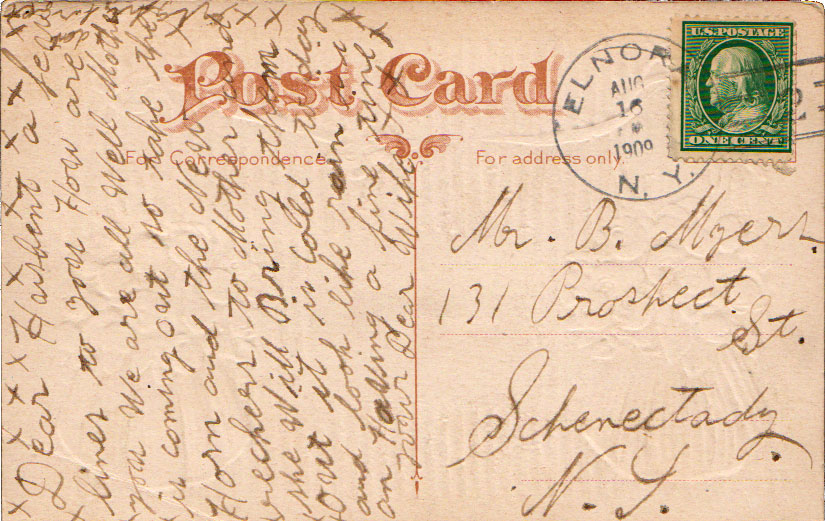 Post Card
For Correspondence
For address only.
U.S. POSTAGE
ONE CENT
ELNORA
AUG
16
1909
N. Y.
Mr. B. Myers
131 Prospect
St.
Schenectady
N. Y.
Dear Husbent a few
lines to you How are
you We are all Well Mother
is coming out to take the
Horn and the New
to Mother and
she Will Bring them
out it is cold to day
and look like rain
an Having a fine time
your Dear Wife x x